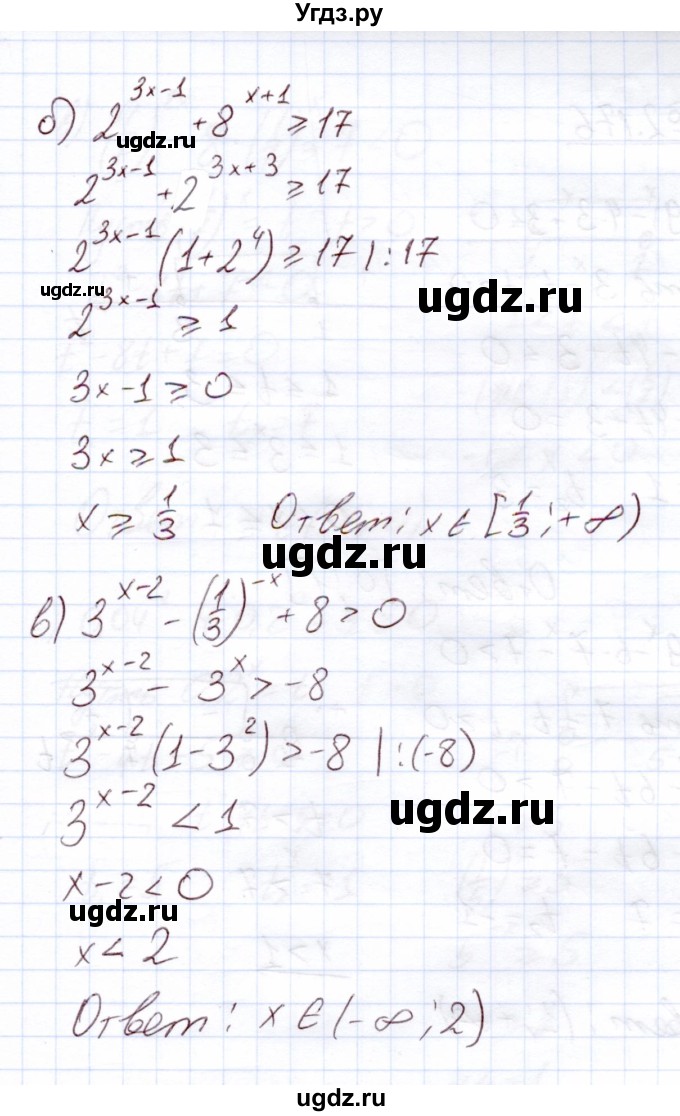 Угдз.ру
б) 2^{3x-1} + 8^{x+1} ≥ 17
ugdz.ru
2^{3x-1} + 2^{3x+3} ≥ 17
2^{3x-1} (1+2^4) ≥ 17 | : 17
ugdz.ru
ugdz.ru
2^{3x-1} ≥ 1
3x-1 ≥ 0
3x ≥ 1
x ≥ 1/3 Ответ: x ∈ [1/3; +∞)
ugdz.ru
в) 3^{x-2} - (1/3)^{-x} + 8 > 0
3^{x-2} - 3^x > -8
3^{x-2} (1-3^2) > -8 | : (-8)
ugdz.ru
3^{x-2} < 1
x-2 < 0
ugdz.ru
x < 2
Ответ: x ∈ (-∞; 2)
ugdz.ru